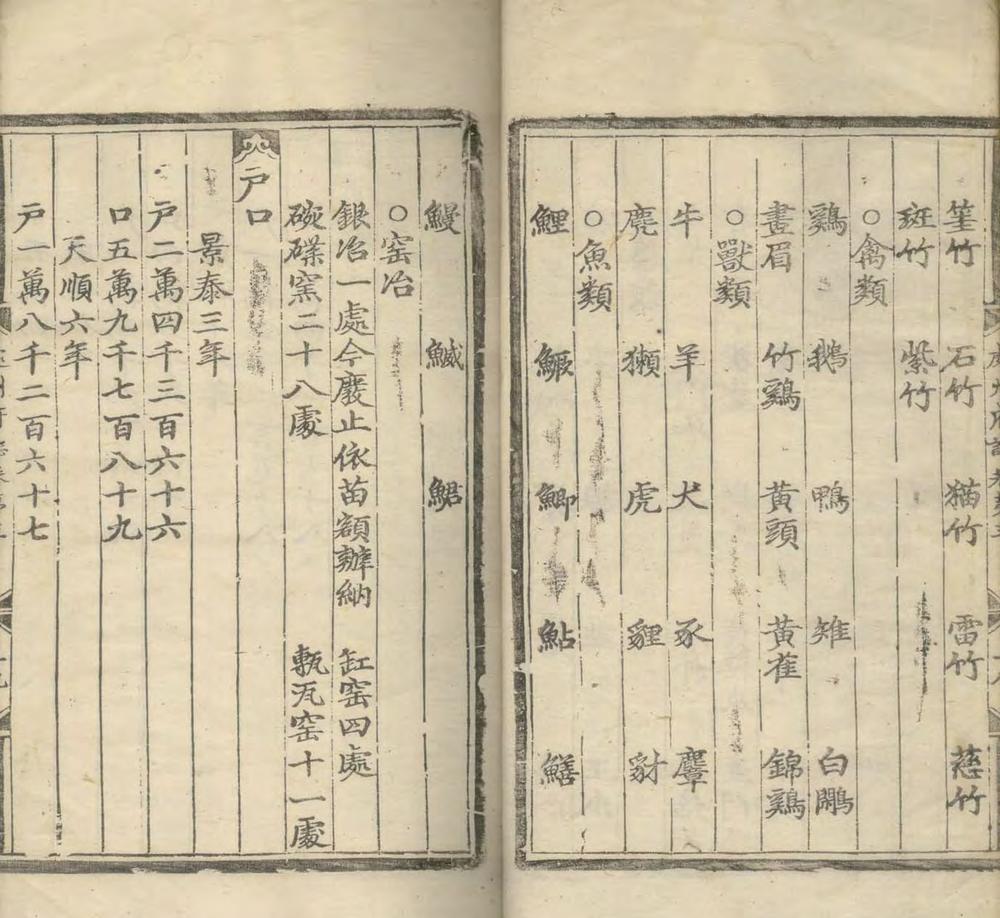 筀竹 石竹 猫竹 雷竹 慈竹
斑竹 紫竹
○禽類
鷄 鵝 鴨 雉 白鷴
畫眉 竹鷄 黄頭 黄雀 錦鷄
○獸類
牛 羊 犬 豕 麞
麂 獺 虎 貍 豺
○魚類
鯉 鱖 鯽 鮎 鱔
鰻 鰄 鮶
○窑冶
銀冶一處今廢止依苗額辦納 缸窑四處
碗碟窑二十八處 甎瓦窑十一處
户口
景泰三年
户二萬四千三百六十六
口五萬九千七百八十九
天順六年
户一萬八千二百六十七